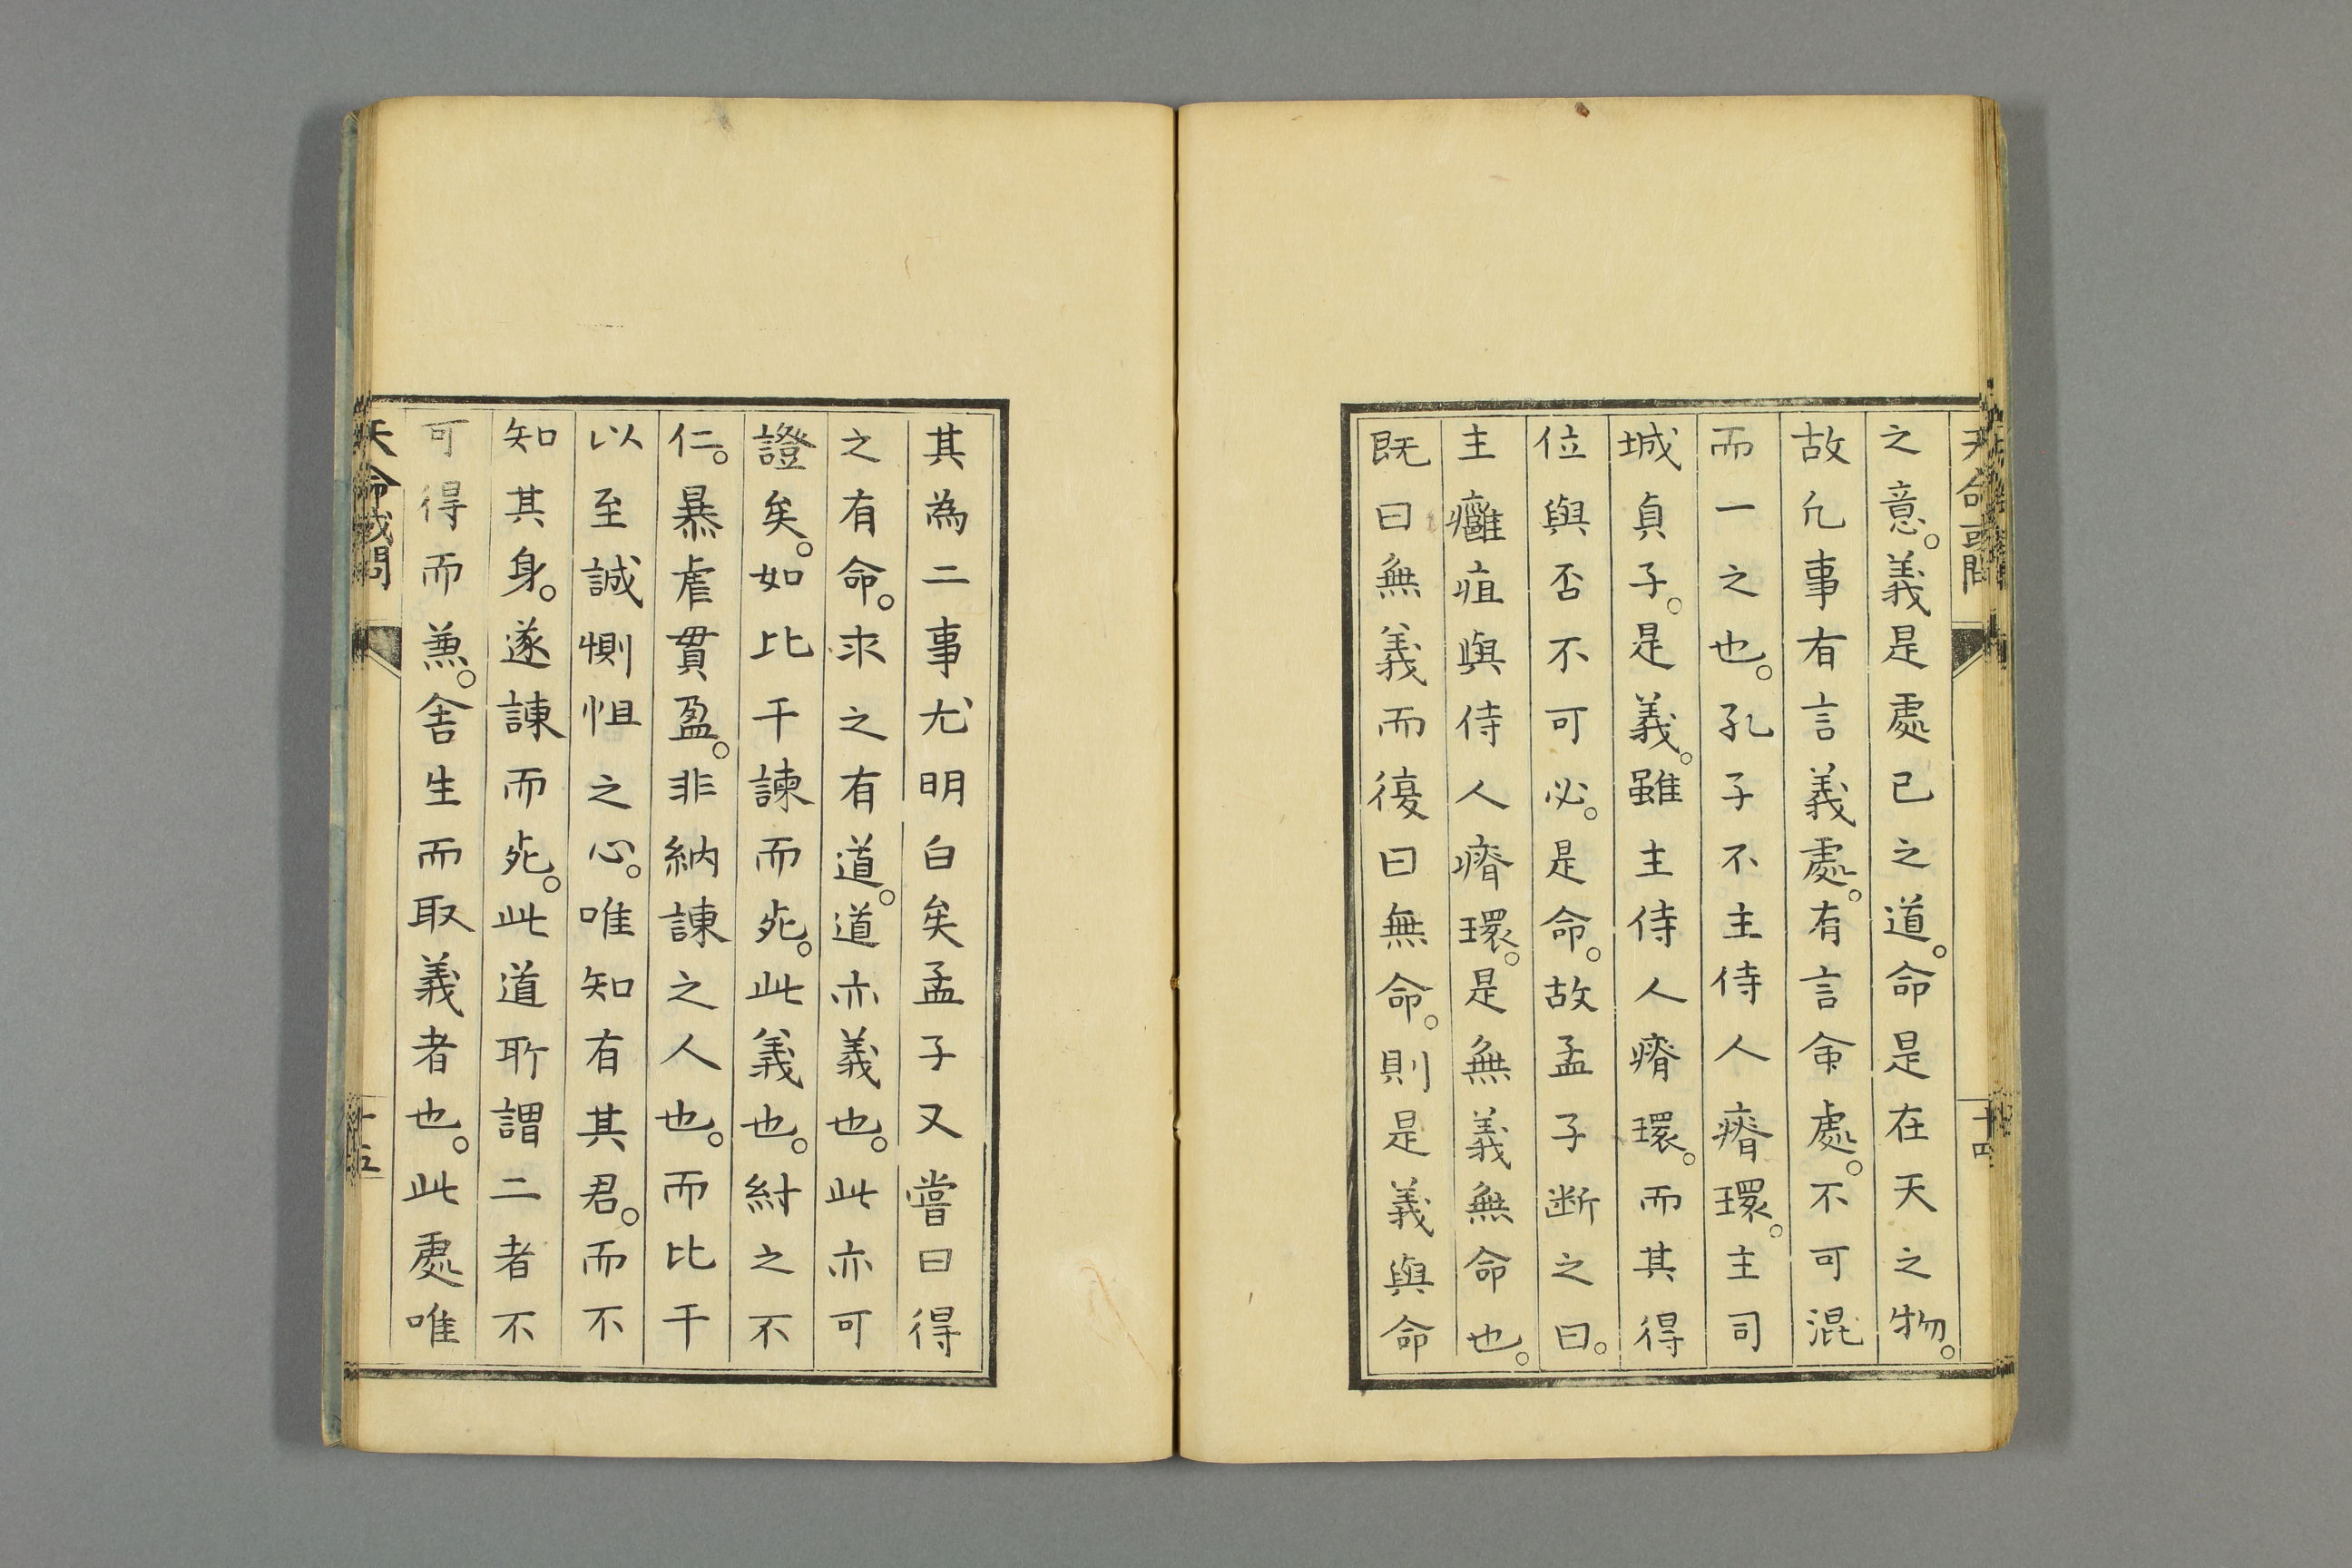 天命或問
十四
之意。義是處已之道。命是在天之物。
故凢事有言義處。有言命處。不可混
而一之也。孔子不主侍人瘠環。主司
城貞子。是義。雖主侍人瘠環。而其得
位與否不可必。是命。故孟子断之曰。
主癰疽與侍人瘠環。是無義無命也。
既曰無義而復曰無命。則是義與命
其為二事尤明白矣孟子又嘗曰得
之有命。求之有道。道亦義也。此亦可
證矣。如比干諫而死。此義也。紂之不
仁。暴虐貫盈。非納諫之人也。而比干
以至誠惻怛之心。唯知有其君。而不
知其身。遂諫而死。此道所謂二者不
可得而兼。舍生而取義者也。此處唯
天命或問
十五